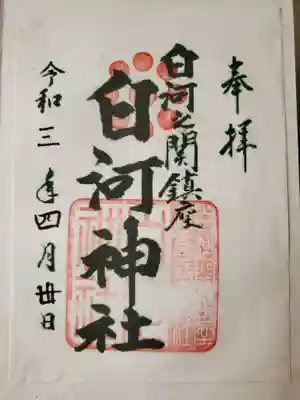 奉拝
白河之関鎮座
白河神社
令和三年四月卅日